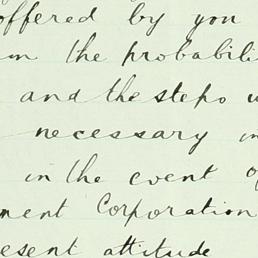 offered by you
in the probabili
and the steps
necessary in
in the event of
ment Corporation
esent attitude